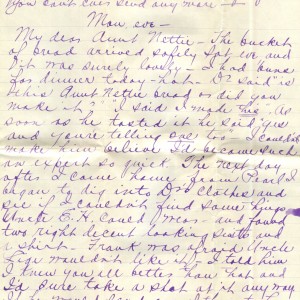 you can't ever send any more
Mon. eve -
My dear Aunt Nettie - The bucket
of bread arrived safely Sat. eve and
it was surely lovely - I had buns
for dinner today - hot - Dr said "is
this Aunt Nettie bread or did you
make it?" I said I made this. As
soon as he tasted it he said "yes
and you're telling one too - I couldn't
make him believe I'd become such
an expert so quick. The next day
after I came home from Pearl I
began to dig into Drs clothes and
see if I couldn't find some things
Uncle E. H. could wear - and found
two right decent looking suits and
a shirt - Frank was afraid Uncle
wouldn't like it - I told him
I knew you all better than that and
I'd sure take a shot at it any way